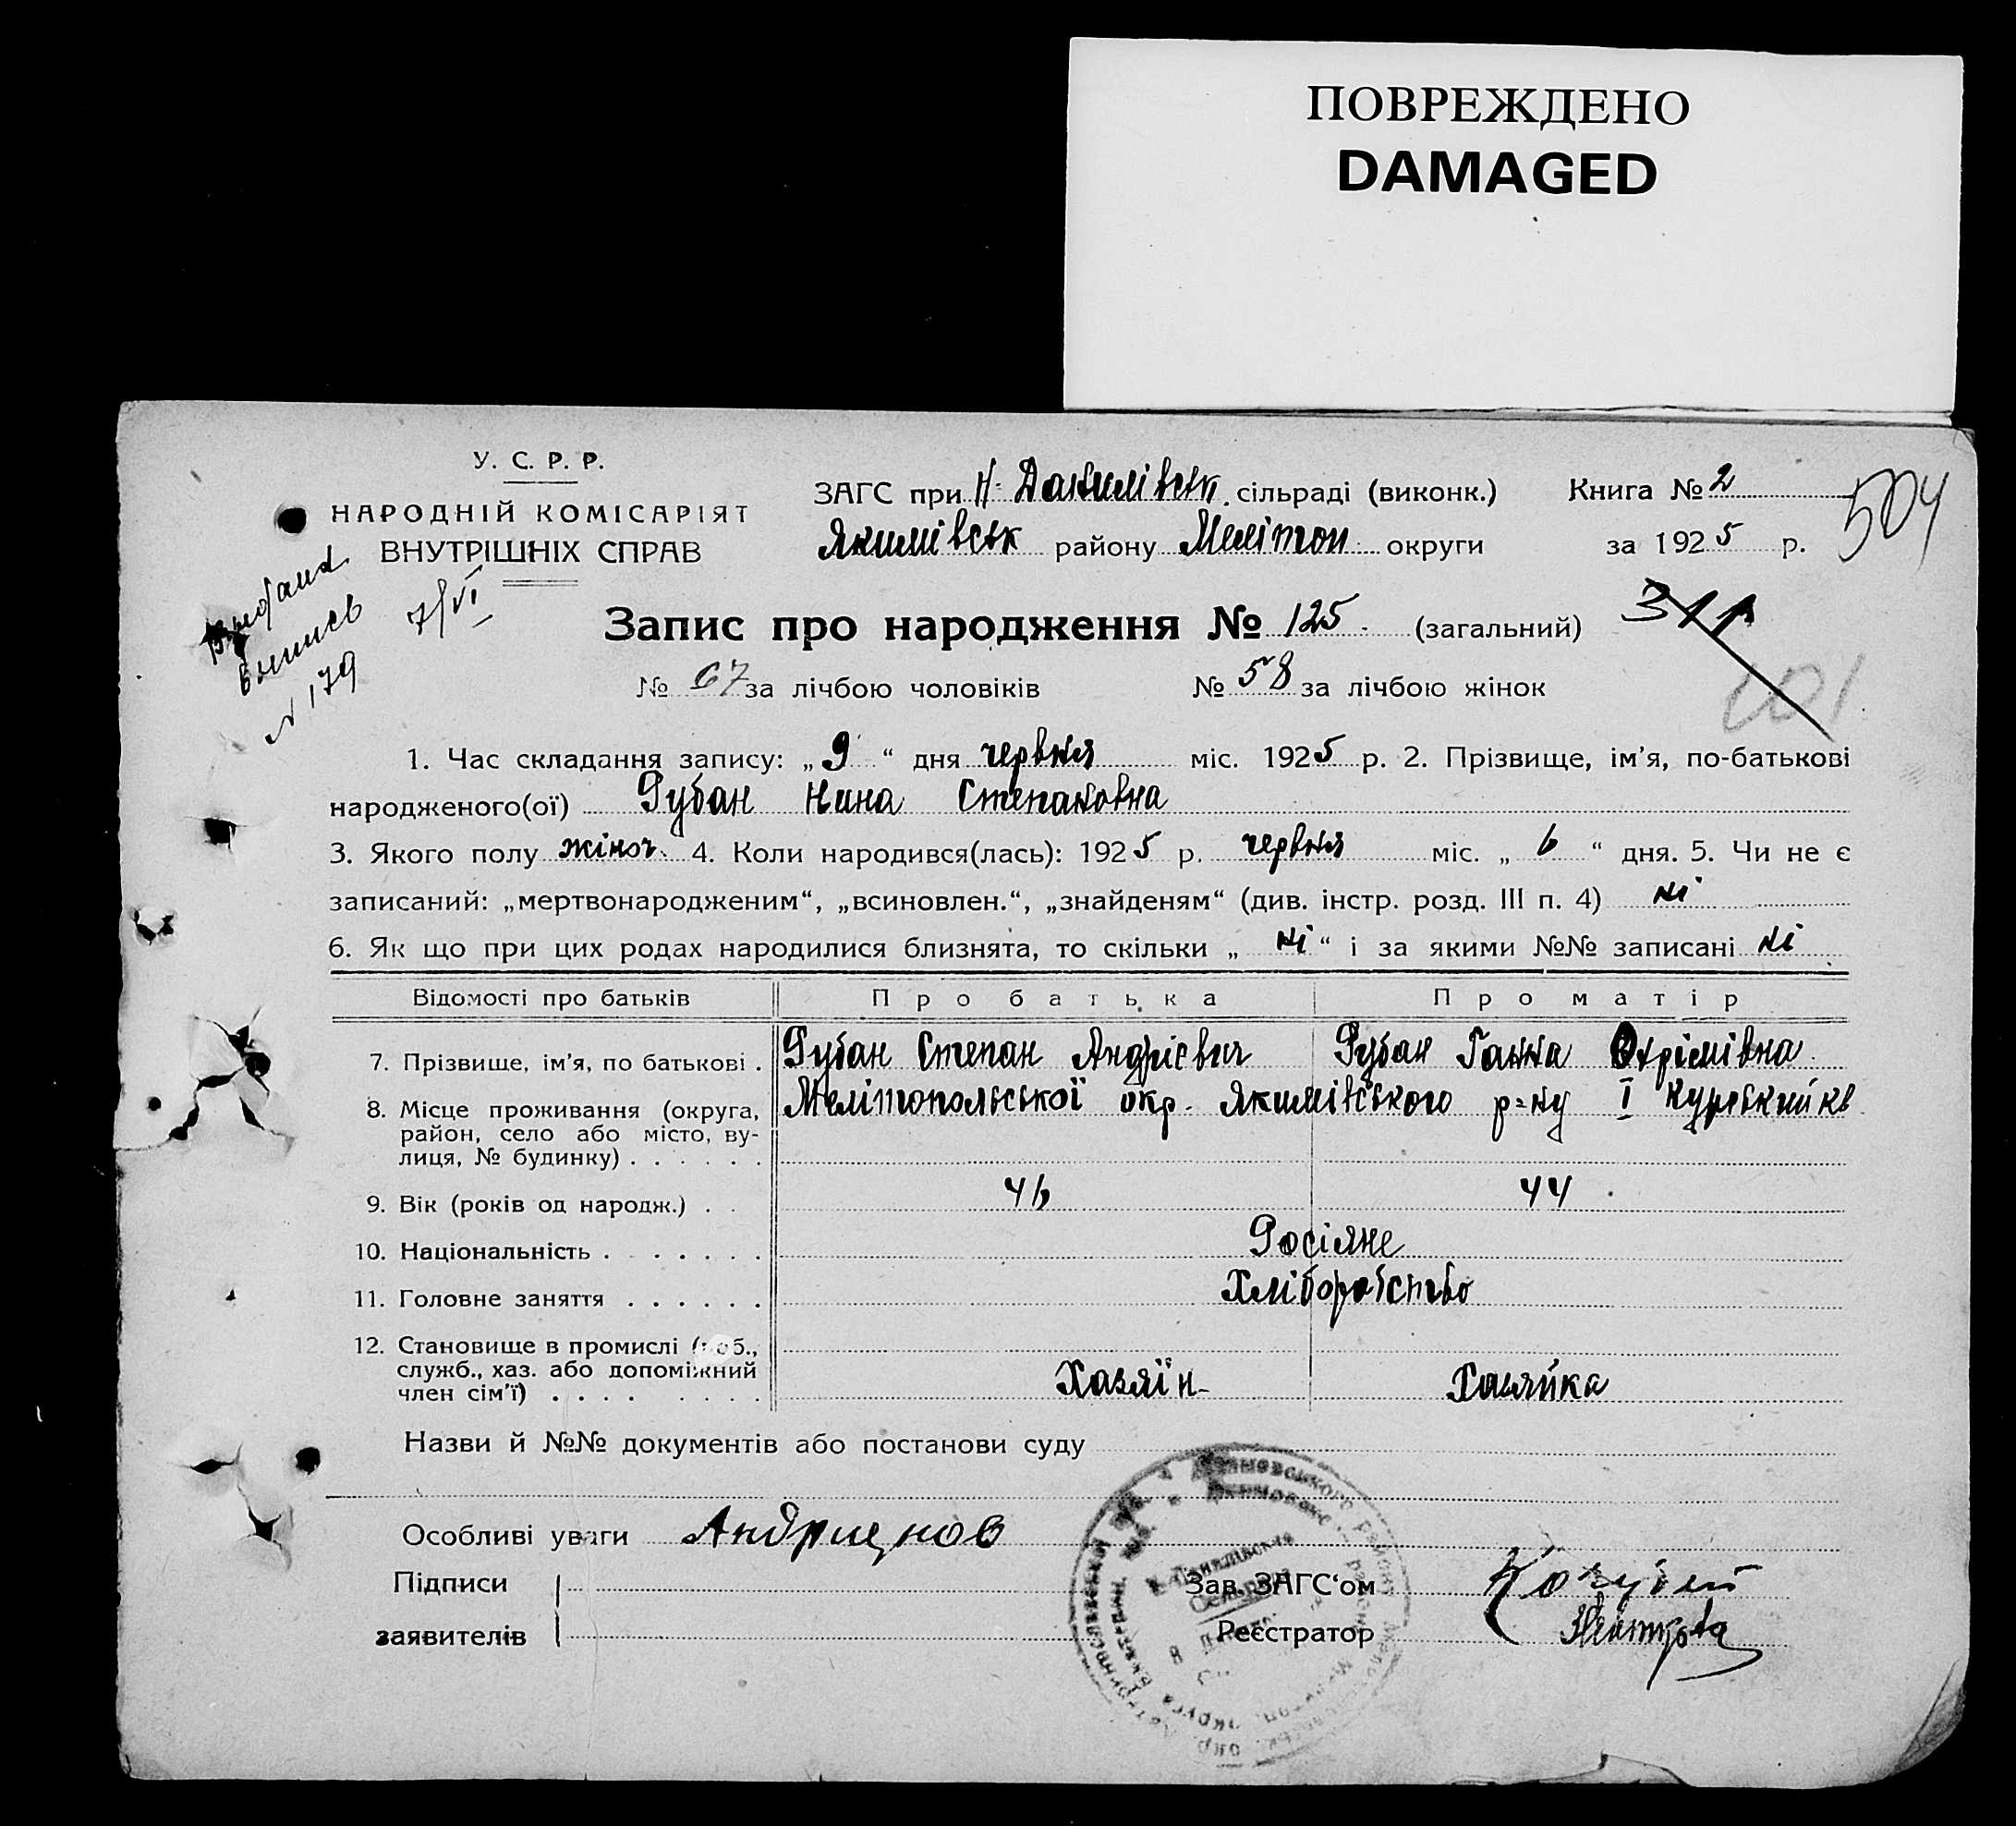 ПОВРЕЖДЕНО
DAMAGED
У. С. Р. Р.
НАРОДНІЙ КОМІСАРІЯТ
ВНУТРІШНІХ СПРАВ
ЗАГС при Н. Данилівськ. сільраді (виконк.) Книга № 2
504
Якимівськ району Мелітоп. округи за 1925 р.
Видана
выпись 7/VI
N 179
Запис про народження № 125. (загальний) 311
№ 67 за лічбою чоловіків № 58 за лічбою жінок
101
1. Час складання запису: „9“ дня червня міс. 1925 р. 2. Прізвище, ім’я, по-батькові
народженого(ої) Рубан Нина Степановна
3. Якого полу жіноч. 4. Коли народився(лась): 1925 р. червня міс. „6“ дня. 5. Чи не є
записаний: „мертвонародженим“, „всиновлен.“, „знайденям“ (див. інстр. розд. III п. 4) ні
6. Як що при цих родах народилися близнята, то скільки „ні“ і за якими №№ записані ні
Відомості про батьків Про батька Про матір
7. Прізвище, ім’я, по батькові . Рубан Степан Андрієвич Рубан Ганна Охрімівна
8. Місце проживання (округа, Мелітопольської окр. Якимівського р-ну I Курський кв
район, село або місто, ву-
лиця, № будинку) . . . . . .
9. Вік (років од народж.) . . 46 44
10. Національність . . . . . . . Росіяне
11. Головне заняття . . . . . . Хліборобство
12. Становище в промислі (роб.,
служб., хаз. або допоміжний Хазяїн Хазяйка
член сім’ї) . . . . . . . .
Назви й №№ документів або постанови суду
Особливі уваги
Підписи Зав. ЗАГС‘ом
заявителів Реєстратор